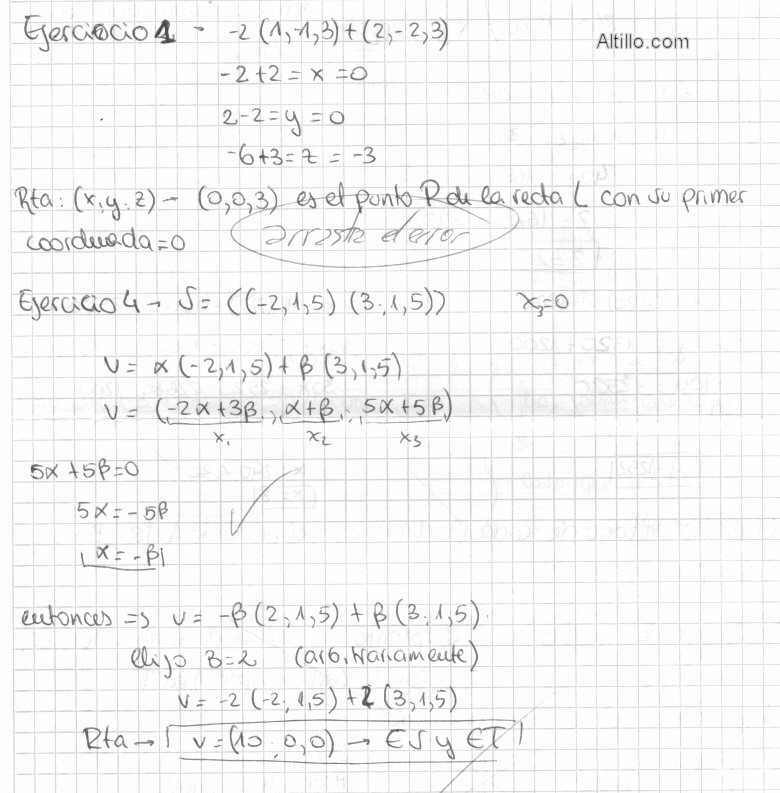 Ejerciocio 1 - -2(1,-1,3)+(2,-2,3)
Altillo.com
-2+2 = x = 0
2-2 = y = 0
-6+3 = z = -3
Rta: (x,y,z) - (0,0,3) es el punto R de la recta L con su primer
coordenada=0
arrastre de error
Ejercicio 4 → S= ⟨(-2,1,5) (3,1,5)⟩ x₃=0
V= α(-2,1,5)+ β(3,1,5)
V= (-2α+3β, α+β, 5α+5β)
x₁ x₂ x₃
5α+5β=0
5α=-5β
α=-β
entonces => V= -β(2,1,5) + β(3,1,5)
Elijo B=2 (arbitrariamente)
V= -2(-2,1,5) +2(3,1,5)
Rta → V=(10,0,0) → ∈S y ∈T